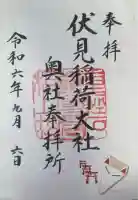 奉拝
伏見稲荷大社
奥社奉拝所
令和六年九月六日